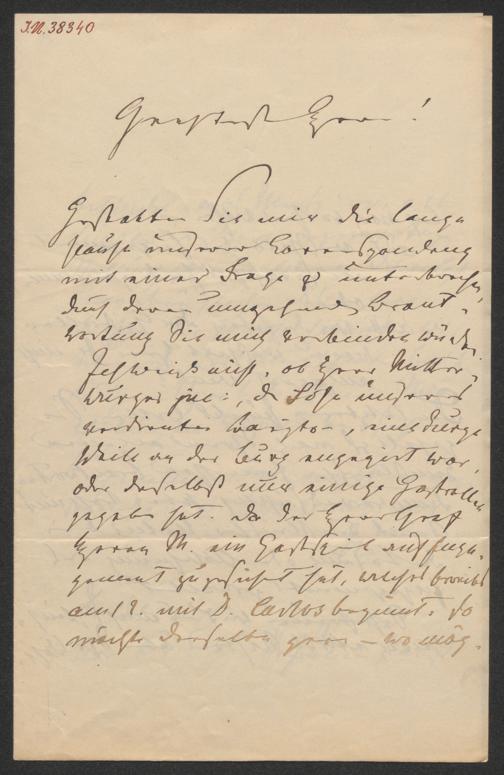 J.N. 38340
Geehrtester Herr!
Gestatten Sie mir die lange
Pause unserer Correspondenz
mit einer Frage zu unterbrechen,
durch deren umgehende Beant-
wortung Sie mich verbinden würden.
Ich weiß nicht, ob Herr Mitter-
wurzer jun:, der Sohn unseres
verdienten Baryton, eine kurze
Weile an der Burg engagiert war,
oder daselbst nur einige Gastrollen
gegeben hat. Da der Herr Graf
Herrn M. ein Gastspiel auf Enga-
gement zugesichert hat, welches bereits
am 18. mit D. Carlos beginnt, so
möchte derselbe gern – wo mög-